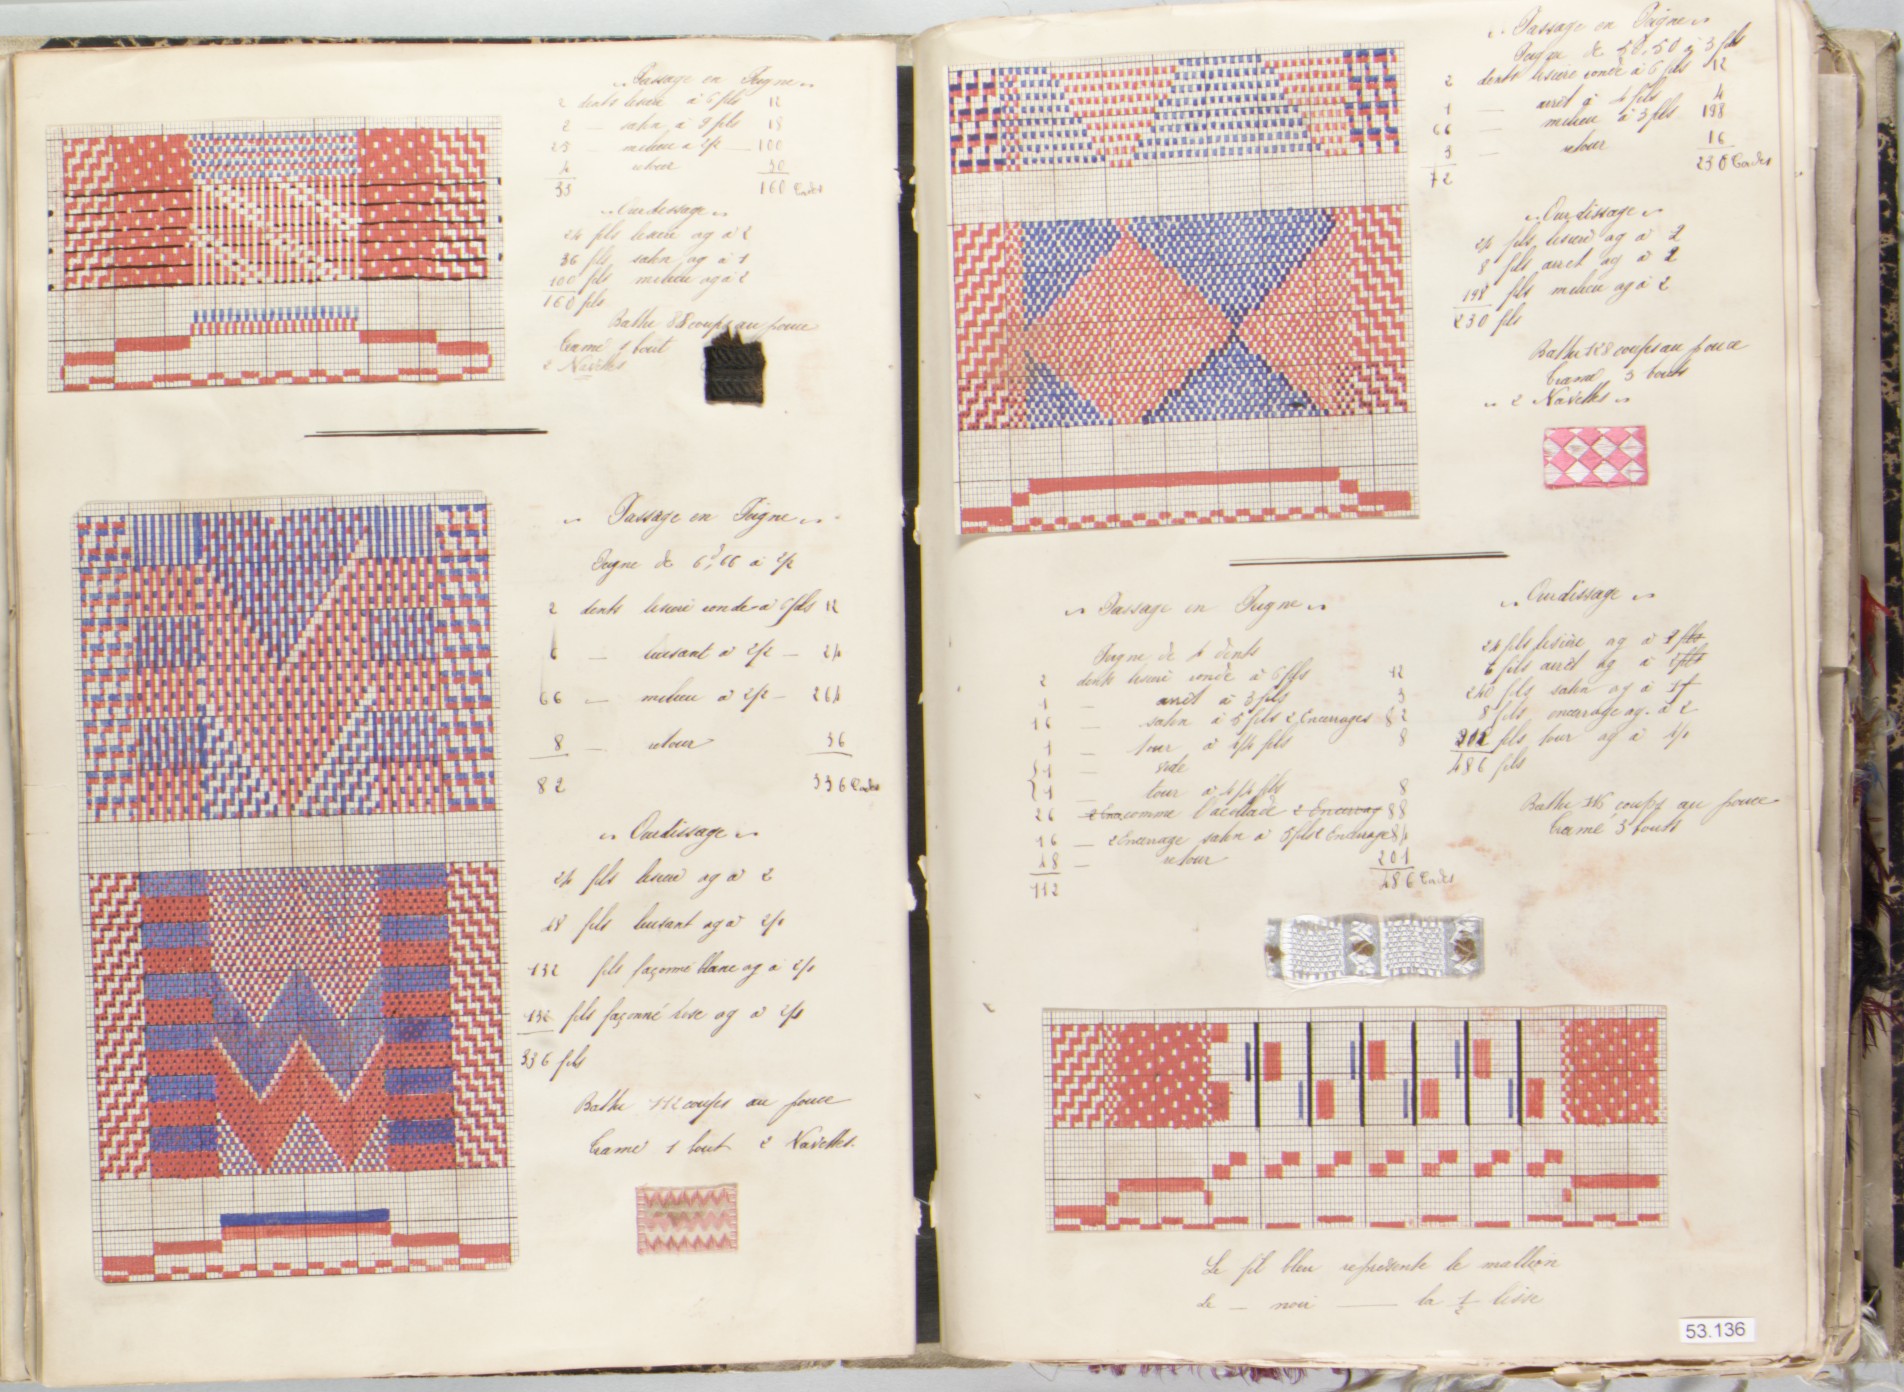 Passage en Peigne
2 dents lisière à 6 fils 12
2 — satin à 9 fils 18
25 — milieu à 2/2 — 100
4 retour 30
33 160 Cordes
Ourdissage
24 fils lisière ag à 2
36 fils satin ag à 1
100 fils milieu ag à 2
160 fils
Battu 88 coups au pouce
Tramé 1 bout
2 Navettes
Passage en Peigne
Peigne de 6, 66 à 2/2
2 dents lisière ronde à 6 fils 12
6 — luisant à 2/2 — 24
66 — milieu à 2/2 — 264
8 — retour 36
82 336 Cordes
Ourdissage
24 fils lisière ag à 2
48 fils luisant ag à
132 fils façonné blanc ag à
132 fils façonné rose ag à
336 fils
Battu 112 coups au pouce
Tramé 1 bout 2 Navettes.
Passage en Peigne
Peigne de 50.50 à 3 fils
2 dents lisière ronde à 6 fils 12
1 — arrêt à 4 fils 4
66 — milieu à 3 fils 198
3 — retour 16
72 230 Cordes
Ourdissage
24 fils lisière ag à 2
8 fils arrêt ag à 2
198 fils milieu ag à 2
230 fils
Battu 128 coups au pouce
Tramé 3 bouts
2 Navettes
Passage en Peigne
Peigne de 4 dents
2 dents lisière ronde à 6 fils 12
1 — arrêt à 3 fils 3
16 — satin à 5 fils 2 Encorages 82
1 — tour à 4/4 fils 8
1 — vide
1 — tour à 4/4 fils 8
26 — comme l'accolade 88
16 — 2 Encorage satin à 5 fils 2 Encorage 84
48 — retour 201
112 486 Cordes
Ourdissage
24 fils lisière ag à
6 fils arrêt ag à
240 fils satin ag à 1f
8 fils encorage ag à 2
fils tour ag à
486 fils
Battu 116 coups au pouce
Tramé 3 bouts
Le fil bleu représente le maillon
Le — noir — la 1/2 lisse
53.136